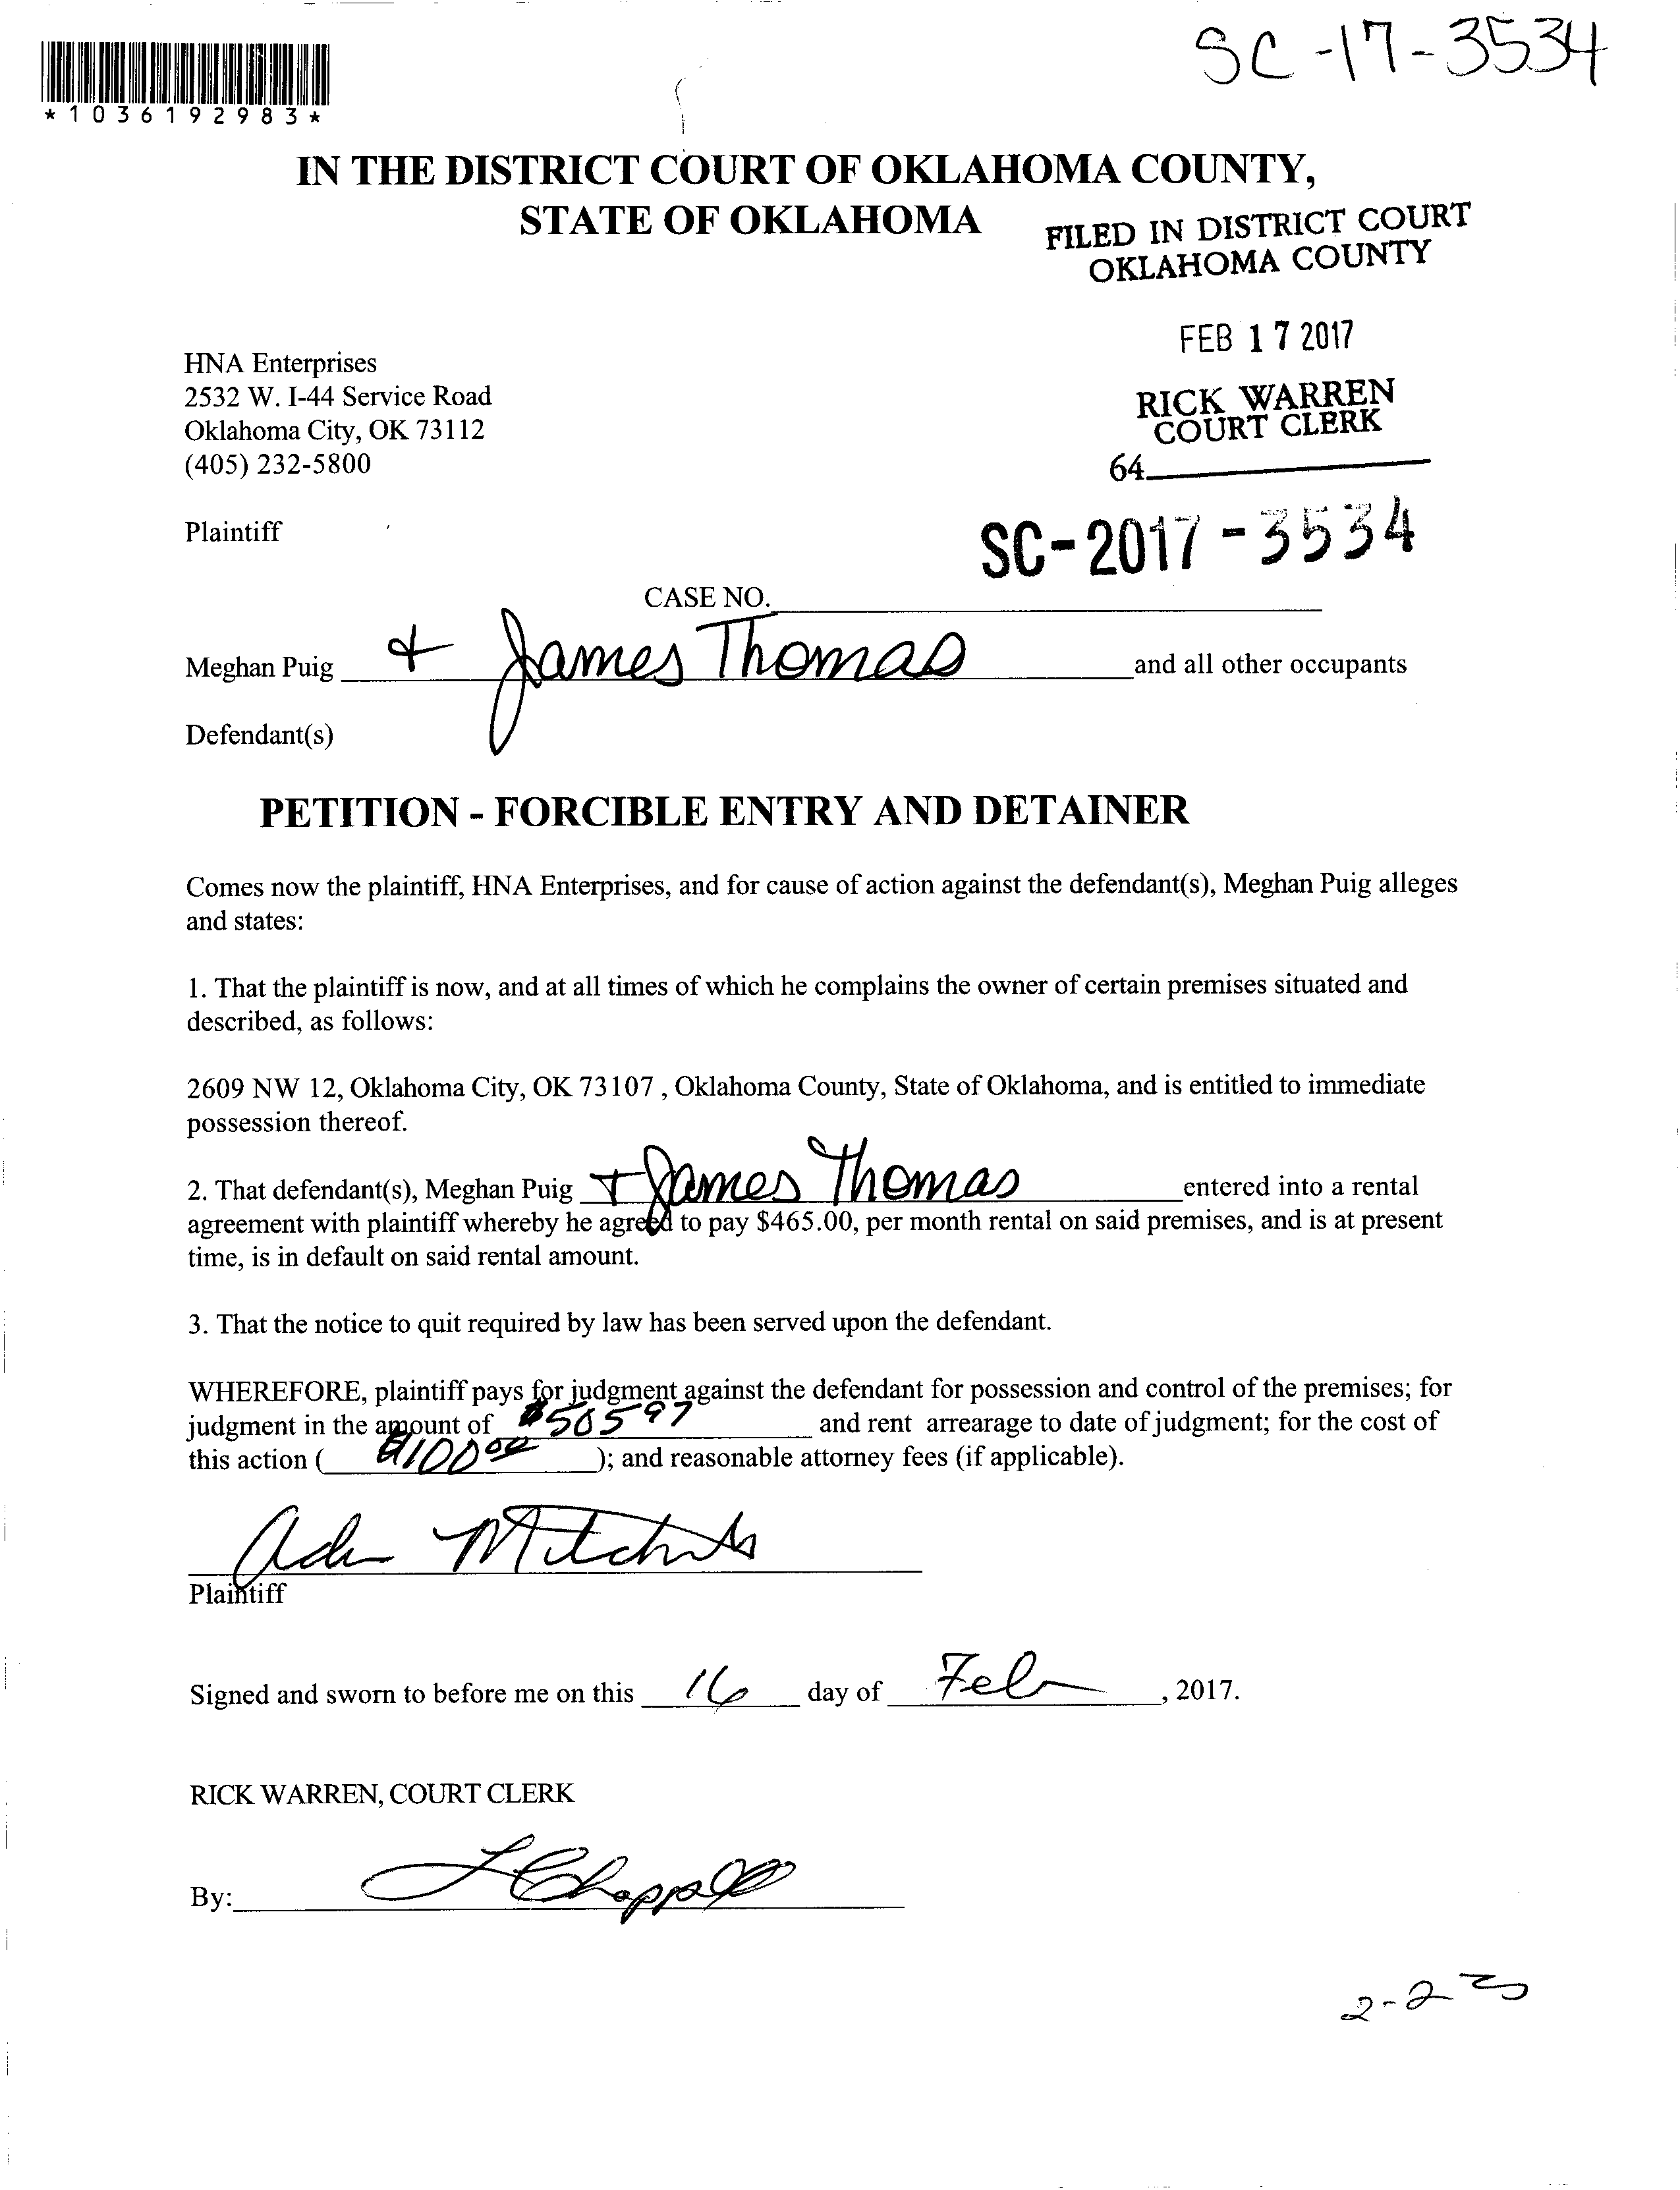 SC-17-3534
*1036192983*
IN THE DISTRICT COURT OF OKLAHOMA COUNTY,
STATE OF OKLAHOMA
FILED IN DISTRICT COURT
OKLAHOMA COUNTY
FEB 17 2017
RICK WARREN
COURT CLERK
64
HNA Enterprises
2532 W. I-44 Service Road
Oklahoma City, OK 73112
(405) 232-5800
Plaintiff
SC-2017-3534
CASE NO.
Meghan Puig & James Thomas and all other occupants
Defendant(s)
PETITION - FORCIBLE ENTRY AND DETAINER
Comes now the plaintiff, HNA Enterprises, and for cause of action against the defendant(s), Meghan Puig alleges
and states:
1. That the plaintiff is now, and at all times of which he complains the owner of certain premises situated and
described, as follows:
2609 NW 12, Oklahoma City, OK 73107 , Oklahoma County, State of Oklahoma, and is entitled to immediate
possession thereof.
2. That defendant(s), Meghan Puig + James Thomas entered into a rental
agreement with plaintiff whereby he agreed to pay $465.00, per month rental on said premises, and is at present
time, is in default on said rental amount.
3. That the notice to quit required by law has been served upon the defendant.
WHEREFORE, plaintiff pays for judgment against the defendant for possession and control of the premises; for
judgment in the amount of $505 97 and rent arrearage to date of judgment; for the cost of
this action ( $100 00 ); and reasonable attorney fees (if applicable).
Plaintiff
Signed and sworn to before me on this 16 day of Feb , 2017.
RICK WARREN, COURT CLERK
By: